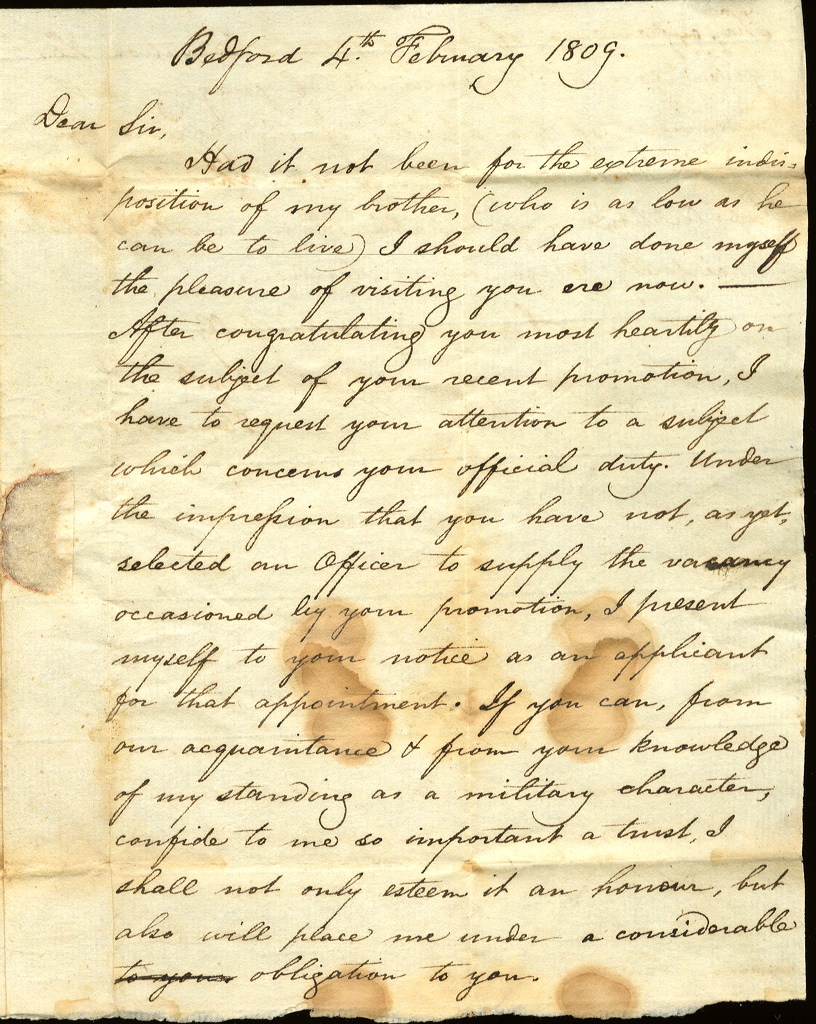 Bedford 4.th February 1809.
Dear Sir,
Had it not been for the extreme indis=
position of my brother, (who is as low as he
can be to live) I should have done myself
the pleasure of visiting you ere now. —
After congratulating you most heartily on
the subject of your recent promotion, I
have to request your attention to a subject
which concerns your official duty. Under
the impression that you have not, as yet,
selected an Officer to supply the vacancy
occasioned by your promotion, I present
myself to your notice as an applicant
for that appointment. If you can, from
our acquaintance & from your knowledge
of my standing as a military character,
confide to me so important a trust, I
shall not only esteem it an honour, but
also will place me under a considerable
to you. obligation to you.